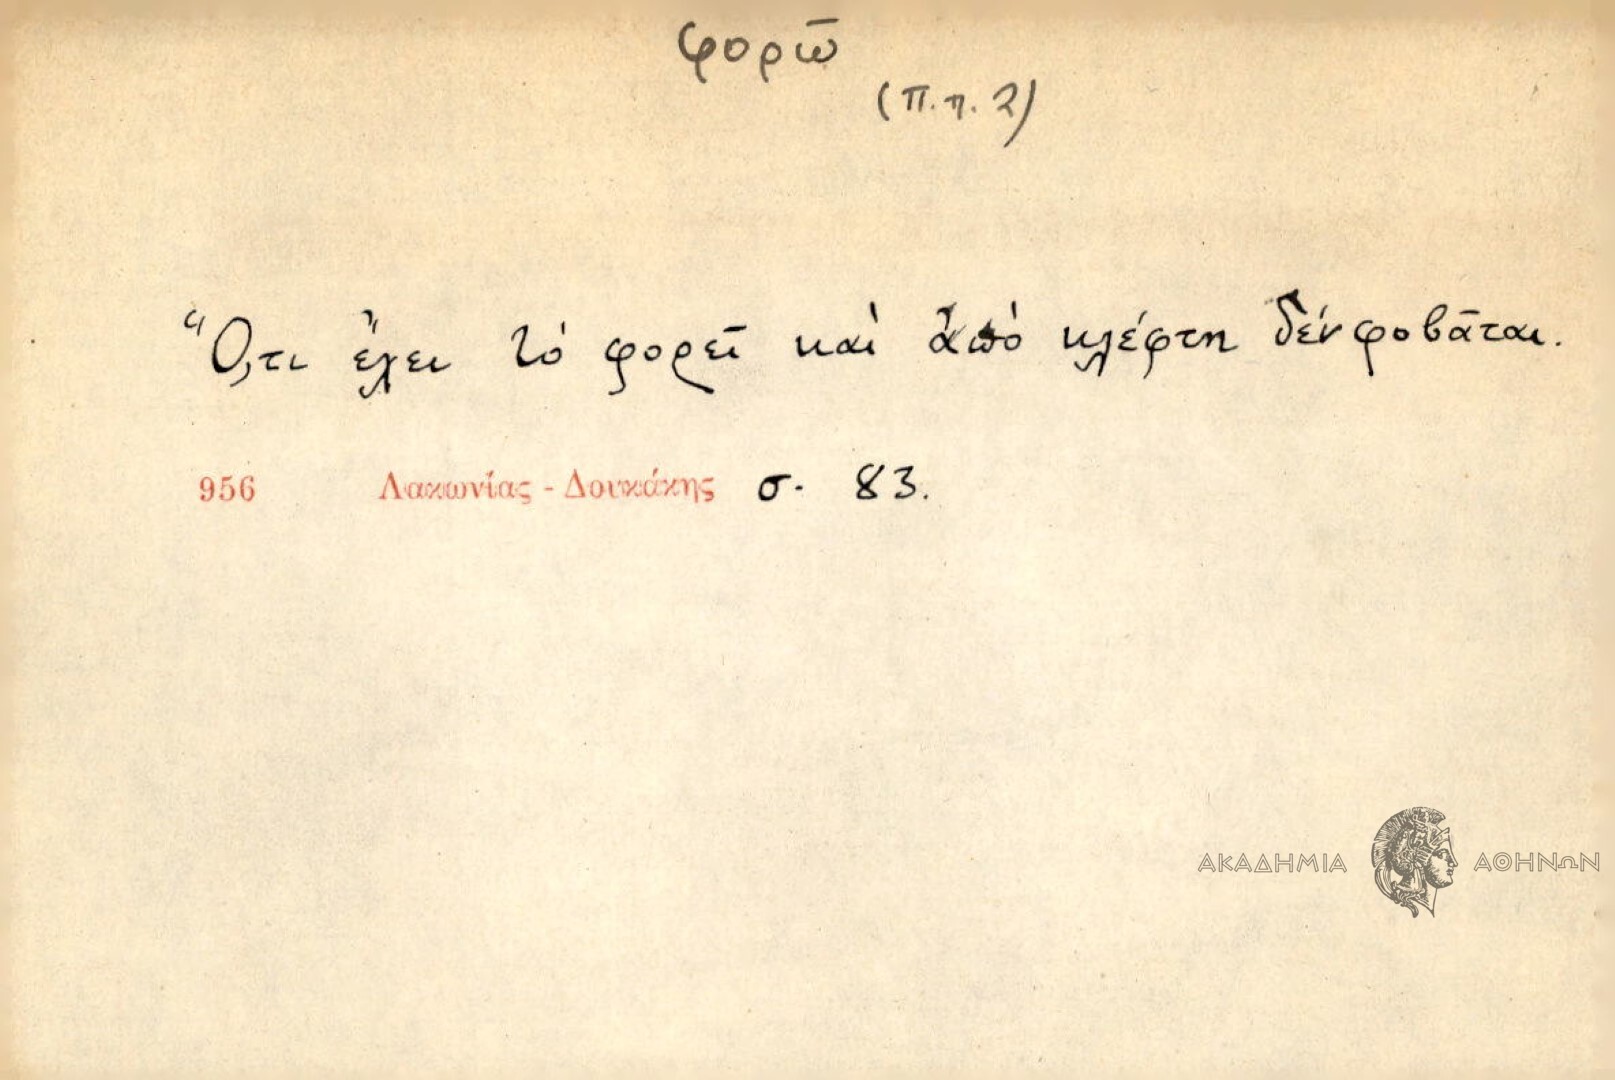 φορῶ
(π.η. 2)
Ὅ,τι ἔχει τὸ φορεῖ καὶ ἀπὸ κλέφτη δέν φοβᾶται.
956 Λακωνίας - Δουκάκης σ. 83.
ΑΚΑΔΗΜΙΑ ΑΘΗΝΩΝ